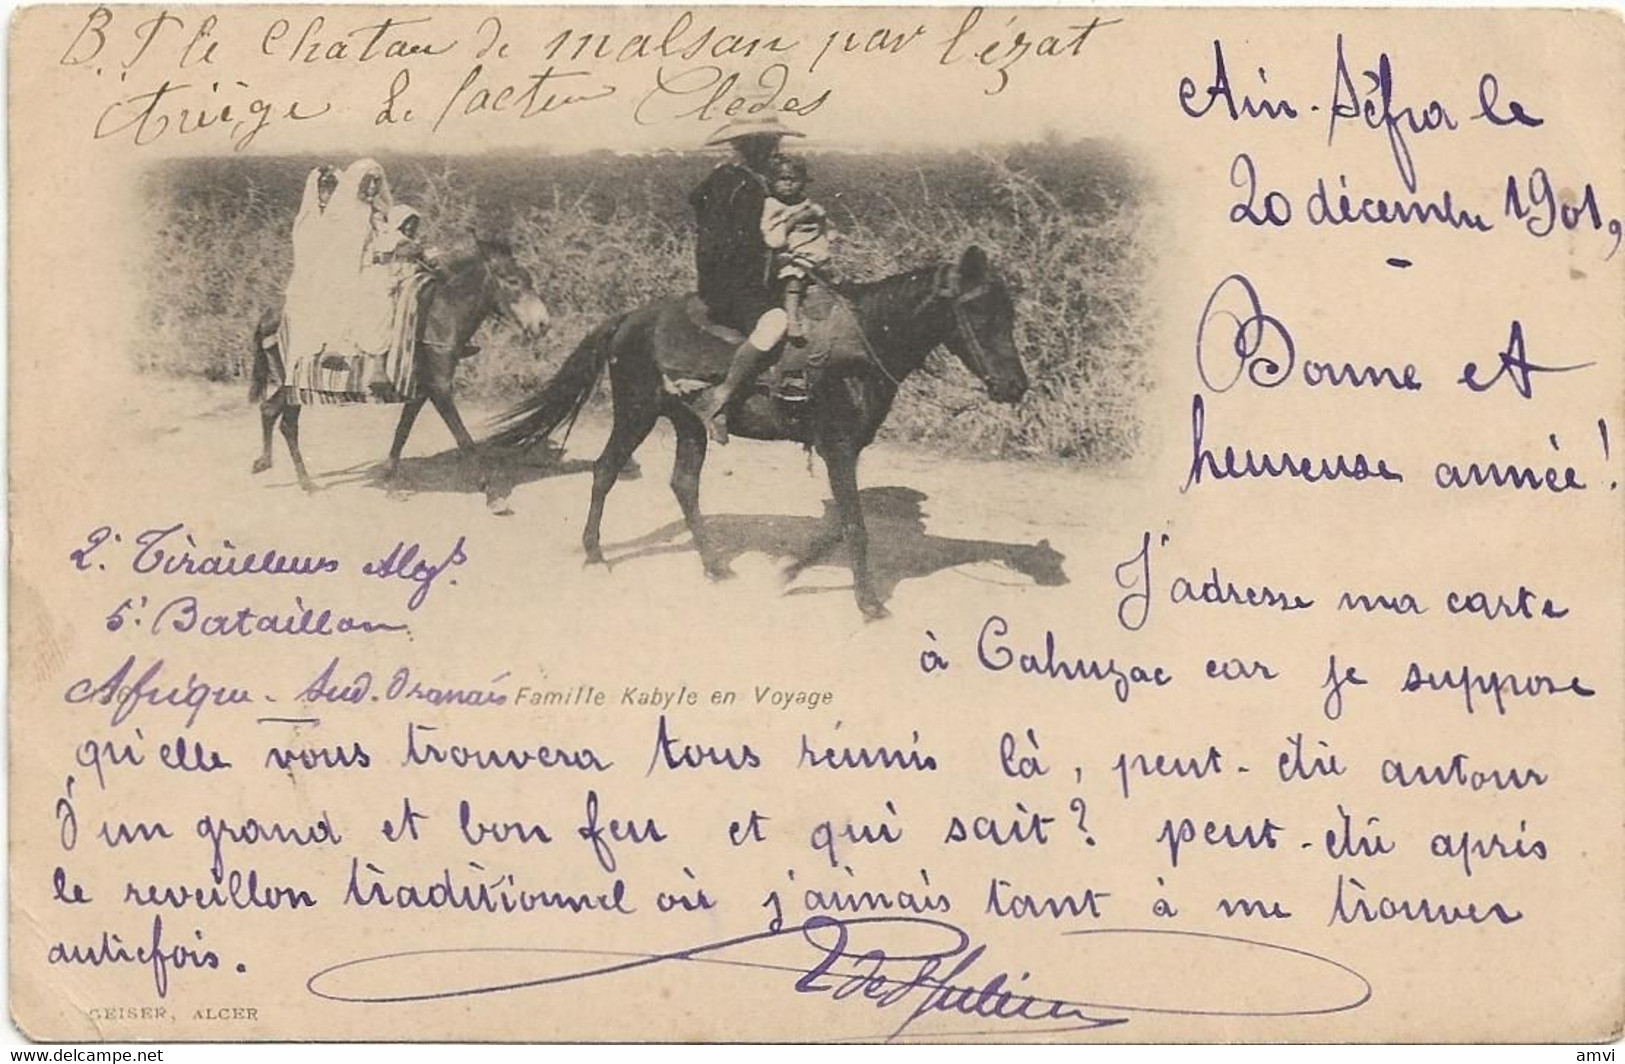 B.T le Chatau de malsan par l'ézat
Ariège Le facteur Cledes
Ain-Séfra le
20 décembre 1901,
Bonne et
heureuse année !
J'adresse ma carte
à Cahuzac car je suppose
2e Tirailleurs Algs.
5e Bataillon
Afrique - Sud-Oranais
Famille Kabyle en Voyage
qu'elle vous trouvera tous réunis là, peut-être autour
d'un grand et bon feu et qui sait ? peut-être après
le reveillon traditionnel où j'aimais tant à me trouver
autrefois.
GEISER, ALGER
amvi